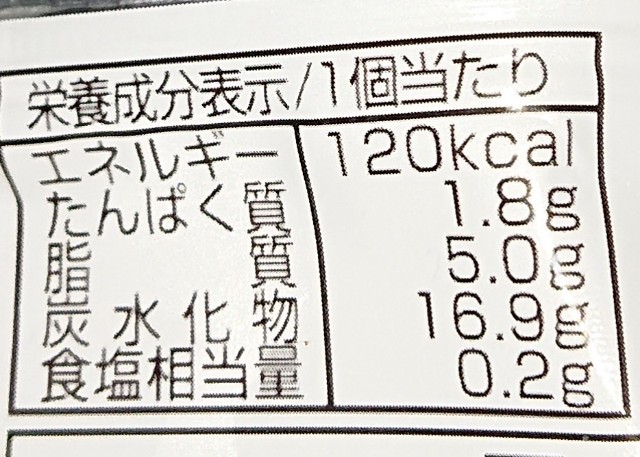 栄養成分表示/1個当たり
エネルギー 120kcal
たんぱく質 1.8g
脂質 5.0g
炭水化物 16.9g
食塩相当量 0.2g